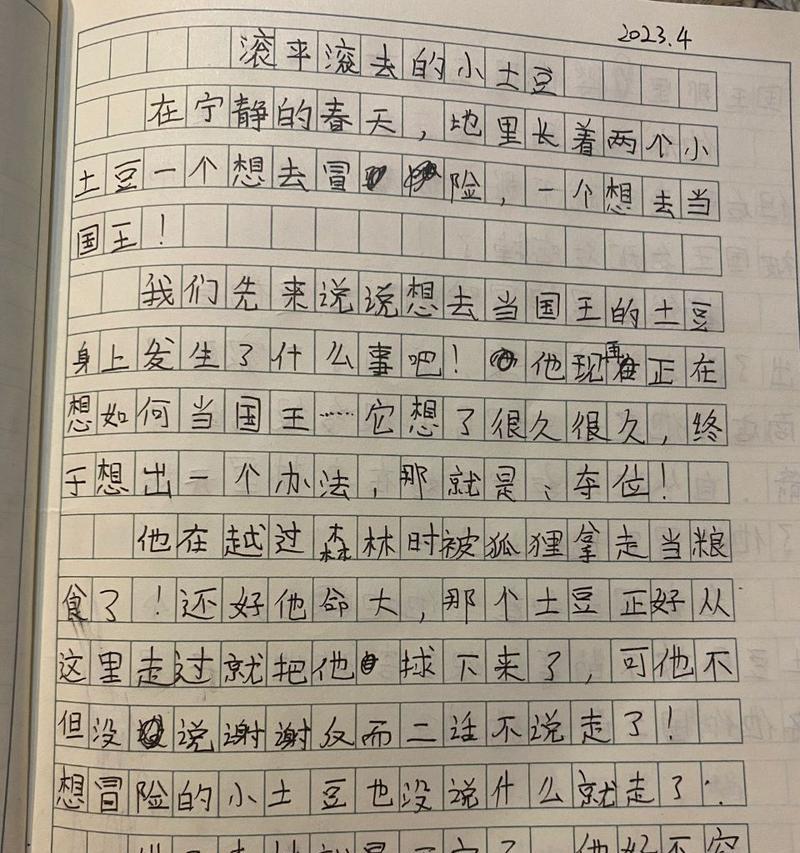 2023.4
滚来滚去的小土豆
在宁静的春天,地里长着两个小
土豆一个想去冒险,一个想去当
国王!
我们先来说说想去当国王的土豆
身上发生了什么事吧!他现再正在
想如何当国王……它想了很久很久,终
于想出一个办法,那就是:夺位!
他在越过森林时被狐狸拿走当粮
食了!还好他命大,那个土豆正好从
这里走过就把他救下来了,可他不
但没说谢谢反而二话不说走了!
想冒险的小土豆也没说什么就走了.